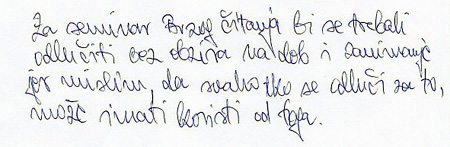 Za seminar Brzog čitanja bi se trebali
odlučiti bez obzira na dob i zanimanje
jer mislim, da svako tko se odluči za to,
može imati koristi od toga.